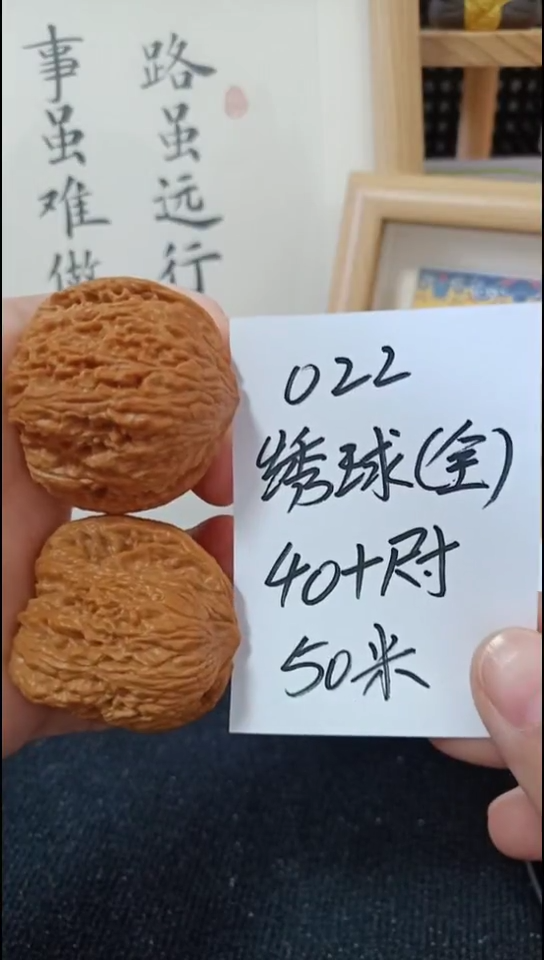 路虽远行
事虽难做
022
绣球(全)
40+尺寸
50米